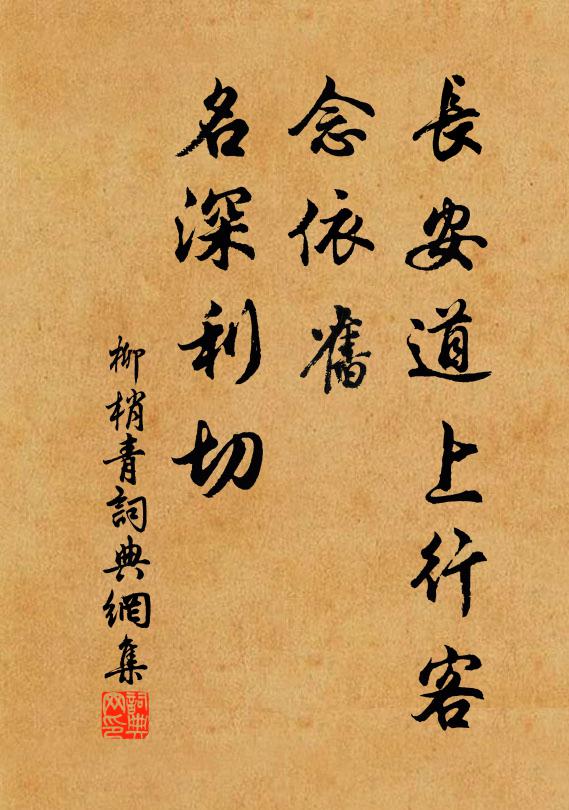 長安道上行客
念依舊
名深利切
柳梢青詞典網集
詞典
网印